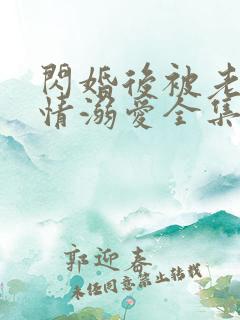 閃婚後被老
情溺愛全集
郭迎春
未任同意禁止转载